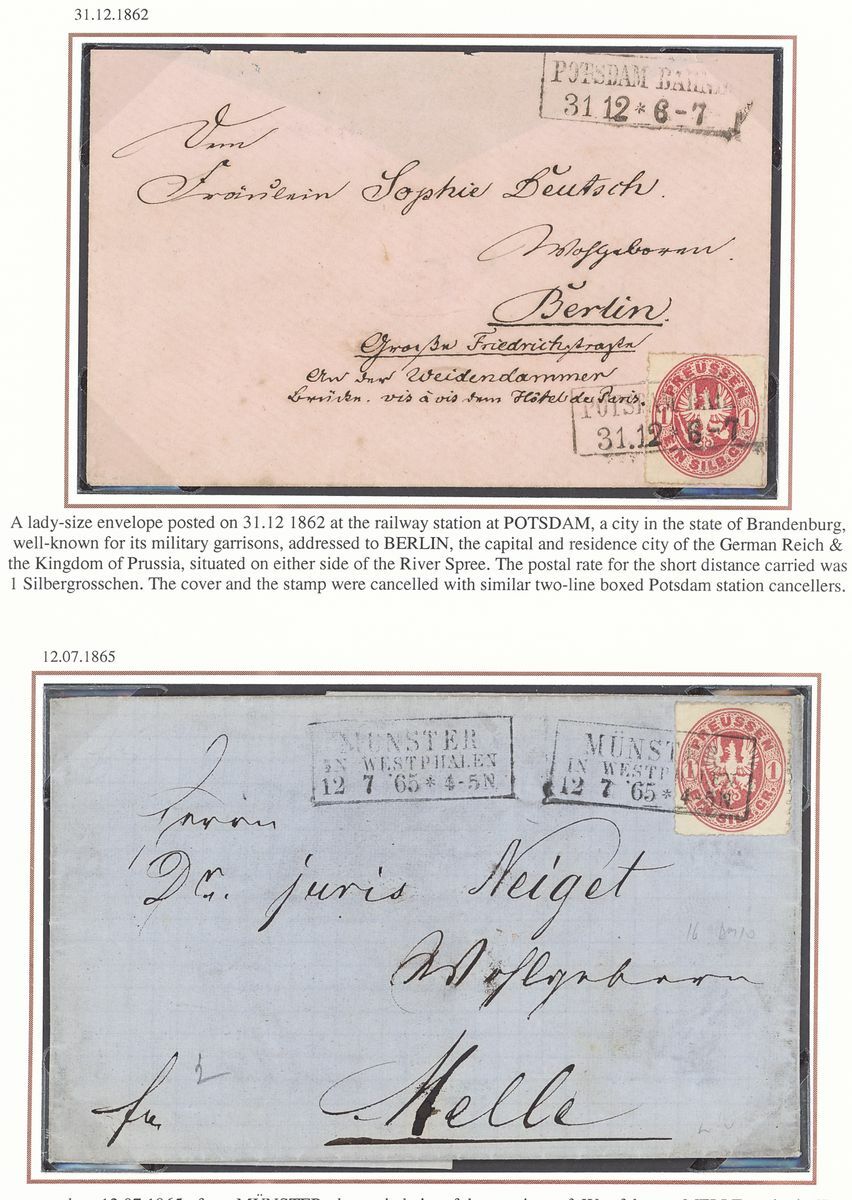 31.12.1862
POTSDAM BAHNH
31 12 * 6-7
Dem
Fräulein Sophie Deutsch.
Wohlgeboren.
Berlin.
Große Friedrichstraße
An der Weidendammer
Brücke. vis à vis dem Hôtel de Paris.
POTSDAM
31.12 * 6-7
PREUSSEN
1 1
EIN SILB. GR.
A lady-size envelope posted on 31.12 1862 at the railway station at POTSDAM, a city in the state of Brandenburg,
well-known for its military garrisons, addressed to BERLIN, the capital and residence city of the German Reich &
the Kingdom of Prussia, situated on either side of the River Spree. The postal rate for the short distance carried was
1 Silbergrosschen. The cover and the stamp were cancelled with similar two-line boxed Potsdam station cancellers.
12.07.1865
MÜNSTER
IN WESTPHALEN
12 7 65 * 4-5N
MÜNST
IN WESTP
12 7 65 * 4-5N
PREUSSEN
1 1
EIN SILB. GR.
Herrn
Dr. juris Neiget
Wohlgebern
fr. Melle